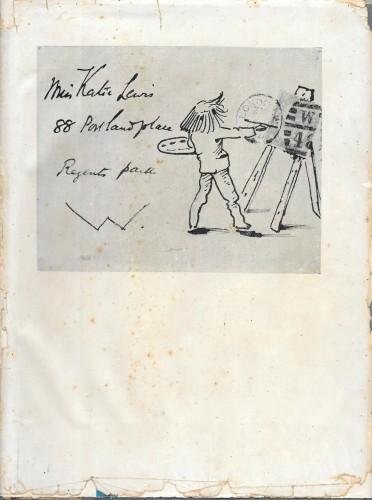 Miss Katie Lewis
88 Portland place
Regents park
W.